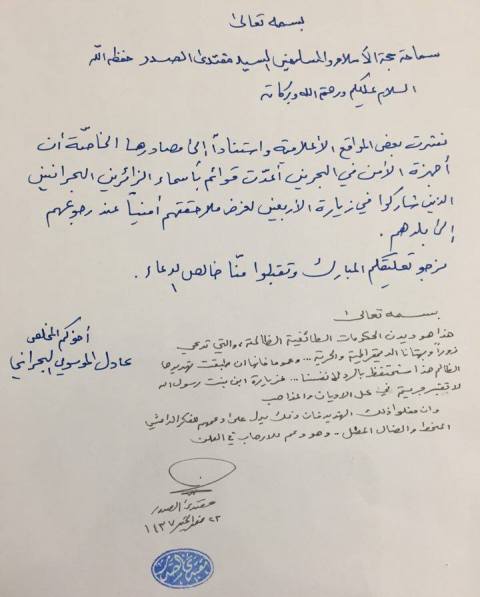 بسمه تعالى
سماحة حجة الإسلام والمسلمين السيد مقتدى الصدر حفظه الله
السلام عليكم ورحمة الله وبركاته
نشرت بعض المواقع الأعلامية واستناداً إلى مصادرها الخاصّة أن
أجهزة الأمن في البحرين أعدّت قوائم بأسماء الزائرين البحرانيين
الذين شاركوا في زيارة الأربعين لغرض ملاحقتهم أمنياً عند رجوعهم
إلى بلدهم .
نرجو تعليقكم المبارك وتقبلوا منّا خالص الدعاء .
أخوكم المخلص
عادل الموسوي البحراني
بسمه تعالى
هذا هو ديدن الحكومات الطائفية الظالمة، والتي تدعي
زوراً وبهتانا الديمقراطية والحرية ... وعموما فانها ان طبقت تهديدها
الظالم هذا سنحتفظ بالرد لانفسنا ... فزيارة ابن بنت رسول الله
لا تعتبر جريمة في كل الاديان والمذاهب
وان فعلوا ذلك التهديد فان ذلك يدل على دعمهم للفكر الداعشي
المنحط والضال المضل .. وهو دعم للارهاب في العلن
مقتدى الصدر
٢٣ صفر الخير ١٤٣٧
مقتدى الصدر